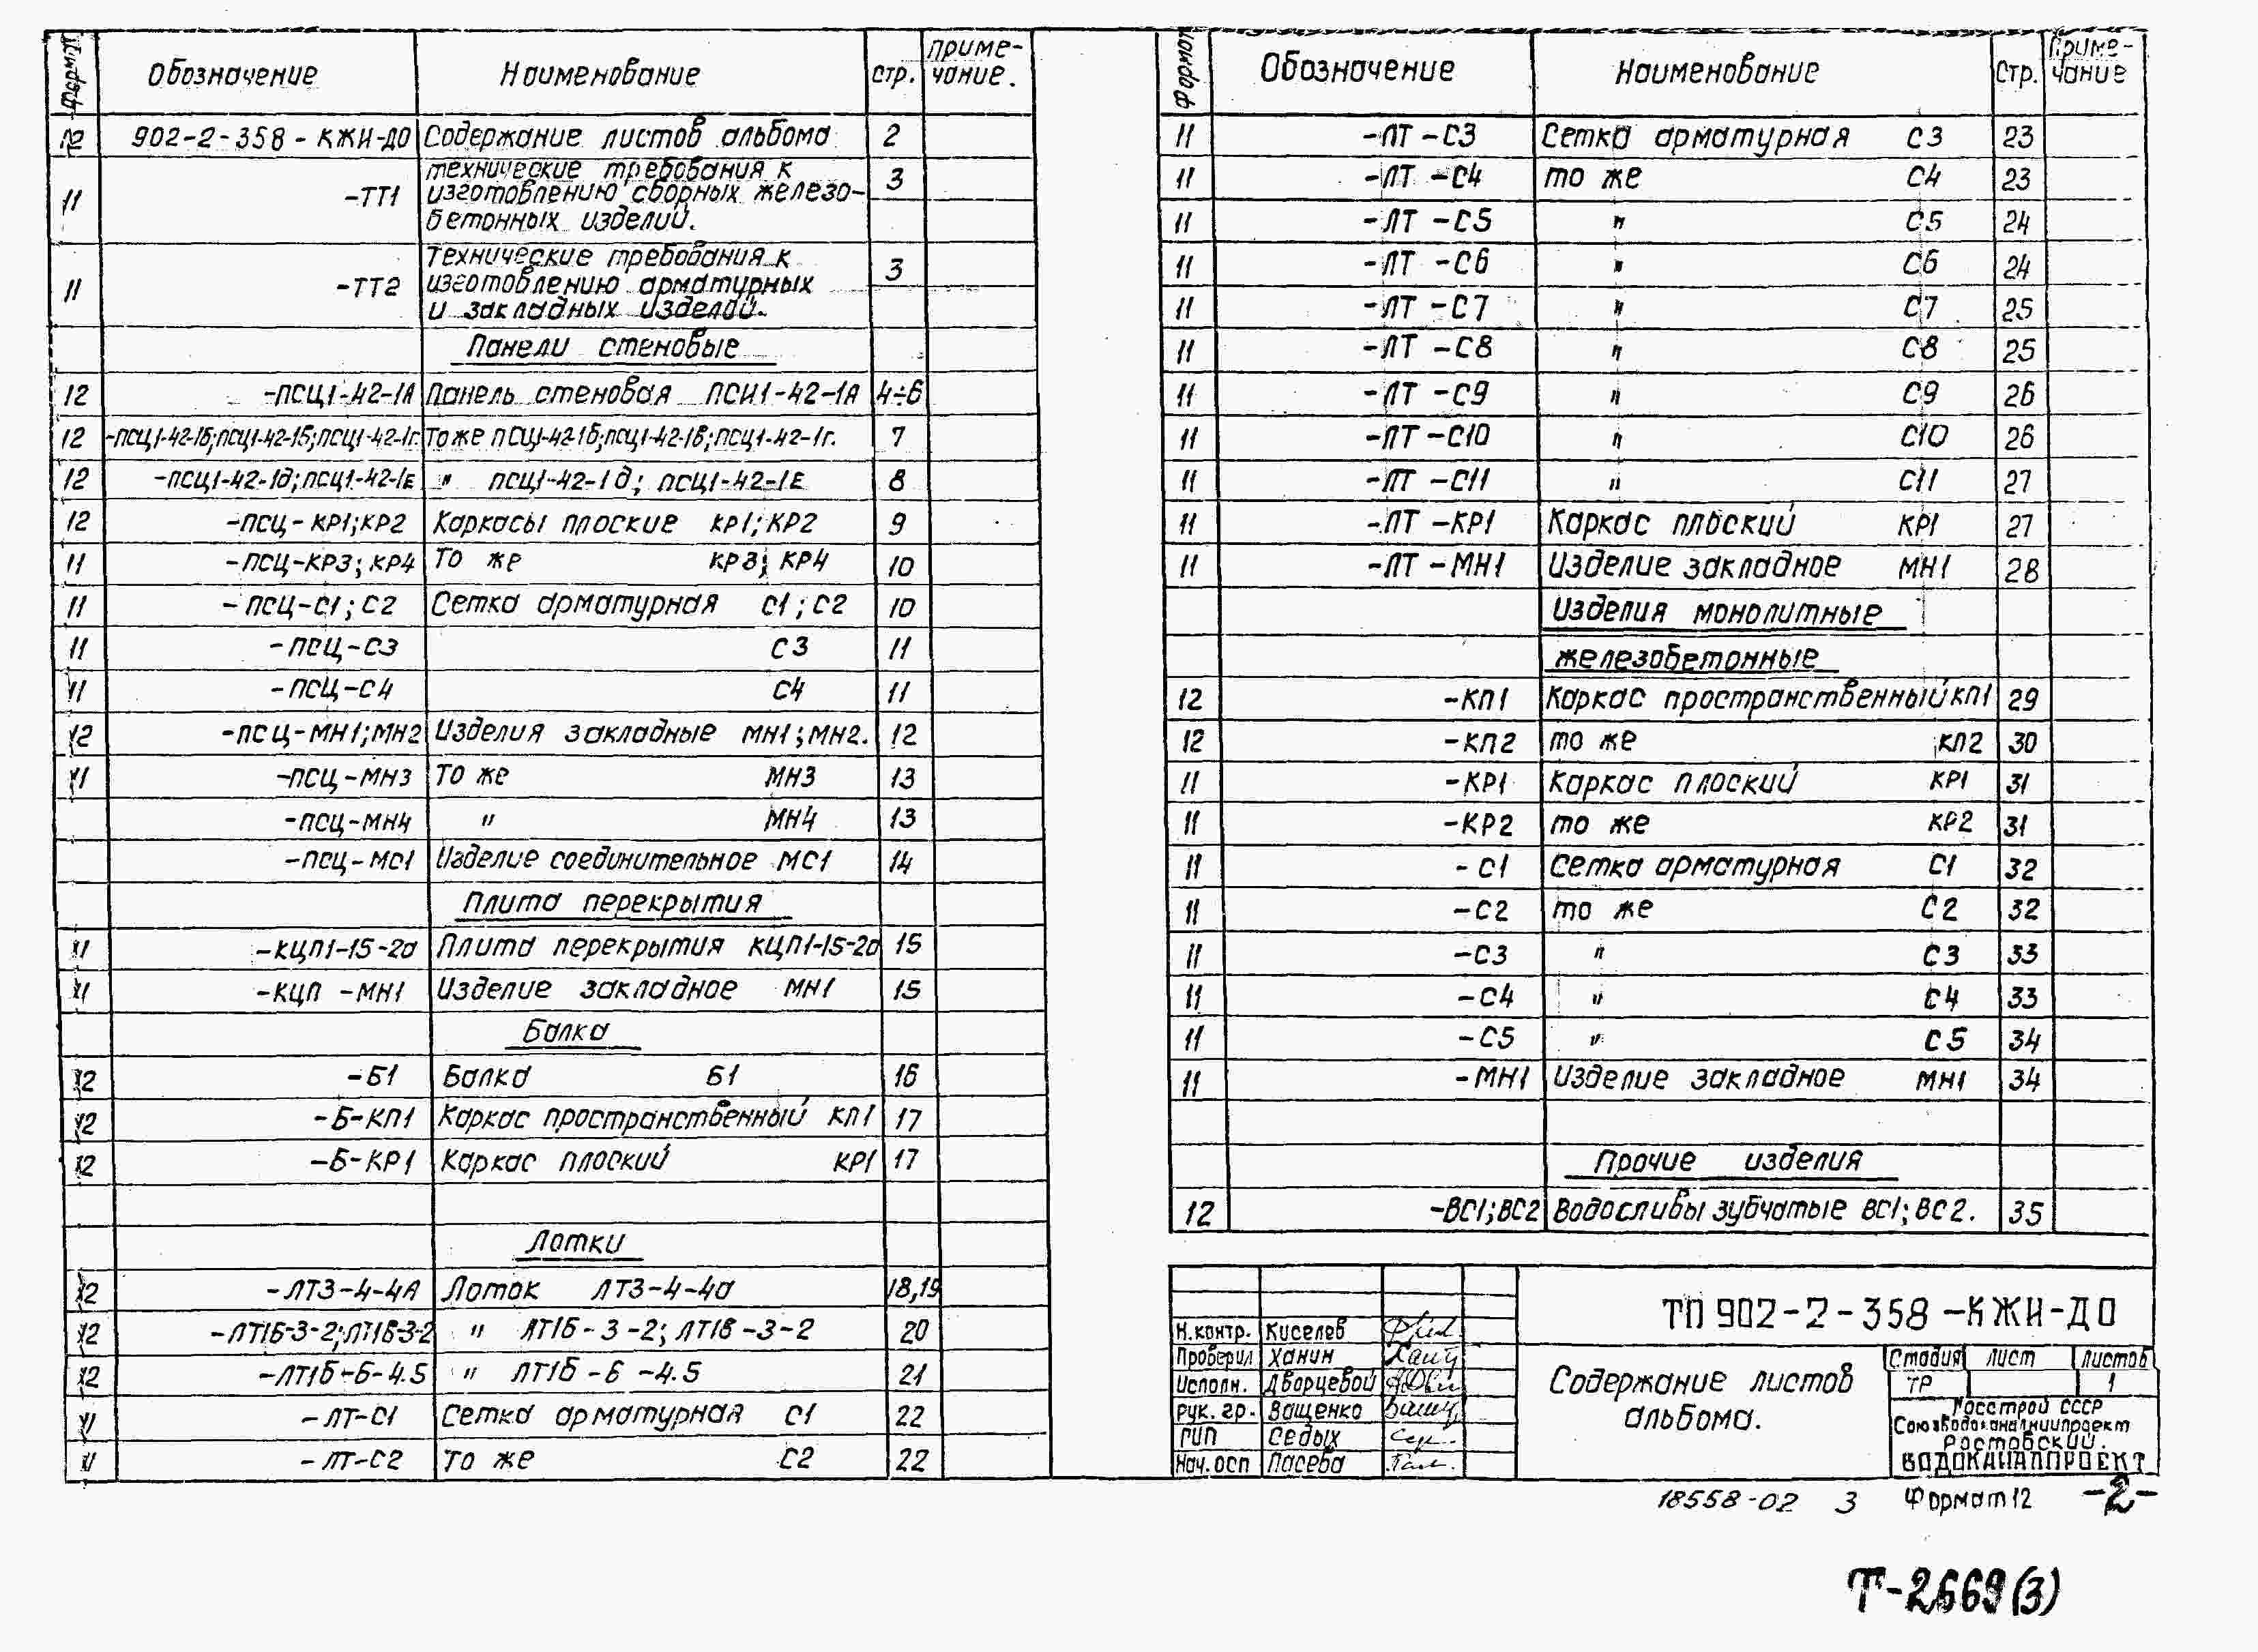 Формат Обозначение Наименование Стр. Приме-
чание.
12 902-2-358-КЖИ-ДО Содержание листов альбома 2
11 -ТТ1 Технические требования к 3
изготовлению сборных железо-
бетонных изделий.
11 -ТТ2 Технические требования к 3
изготовлению арматурных
и закладных изделий.
Панели стеновые
12 -ПСЦ1-42-1А Панель стеновая ПСЦ1-42-1А 4÷6
12 -ПСЦ1-42-1б;ПСЦ1-42-1б;ПСЦ1-42-1г. То же ПСЦ1-42-1б;ПСЦ1-42-1в;ПСЦ1-42-1г. 7
12 -ПСЦ1-42-1д;ПСЦ1-42-1Е " ПСЦ1-42-1д; ПСЦ1-42-1Е 8
12 -ПСЦ-КР1;КР2 Каркасы плоские КР1;КР2 9
11 -ПСЦ-КР3;КР4 То же КР3;КР4 10
11 -ПСЦ-С1;С2 Сетка арматурная С1;С2 10
11 -ПСЦ-С3 С3 11
11 -ПСЦ-С4 С4 11
12 -ПСЦ-МН1;МН2 Изделия закладные МН1;МН2. 12
11 -ПСЦ-МН3 То же МН3 13
-ПСЦ-МН4 " МН4 13
-ПСЦ-МС1 Изделие соединительное МС1 14
Плита перекрытия
11 -КЦП1-15-2а Плита перекрытия КЦП1-15-2а 15
11 -КЦП-МН1 Изделие закладное МН1 15
Балка
12 -Б1 Балка Б1 16
12 -Б-КП1 Каркас пространственный КП1 17
12 -Б-КР1 Каркас плоский КР1 17
Лотки
12 -ЛТ3-4-4А Лоток ЛТ3-4-4а 18,19
12 -ЛТ1Б-3-2;ЛТ1В-3-2 " ЛТ1б-3-2; ЛТ1в-3-2 20
12 -ЛТ1б-6-4.5 " ЛТ1б-6-4.5 21
11 -ЛТ-С1 Сетка арматурная С1 22
11 -ЛТ-С2 То же С2 22
Формат Обозначение Наименование Стр. Приме-
чание
11 -ЛТ-С3 Сетка арматурная С3 23
11 -ЛТ-С4 то же С4 23
11 -ЛТ-С5 " С5 24
11 -ЛТ-С6 " С6 24
11 -ЛТ-С7 " С7 25
11 -ЛТ-С8 " С8 25
11 -ЛТ-С9 " С9 26
11 -ЛТ-С10 " С10 26
11 -ЛТ-С11 " С11 27
11 -ЛТ-КР1 Каркас плоский КР1 27
11 -ЛТ-МН1 Изделие закладное МН1 28
Изделия монолитные
железобетонные
12 -КП1 Каркас пространственный КП1 29
12 -КП2 то же КП2 30
11 -КР1 Каркас плоский КР1 31
11 -КР2 то же КР2 31
11 -С1 Сетка арматурная С1 32
11 -С2 то же С2 32
11 -С3 " С3 33
11 -С4 " С4 33
11 -С5 " С5 34
11 -МН1 Изделие закладное МН1 34
Прочие изделия
12 -ВС1;ВС2 Водосливы зубчатые ВС1;ВС2. 35
ТП 902-2-358-КЖИ-ДО
Н.контр. Киселев
Проверил Ханин
Исполн. Дворцевой
Рук. гр. Ващенко
ГИП Седых
Нач.осп Пасева
Содержание листов
альбома.
Стадия Лист Листов
ТР 1
Госстрой СССР
Союзводоканалниипроект
Ростовский
ВОДОКАНАЛПРОЕКТ
18558-02 3 Формат 12 -2-
Т-2669(3)